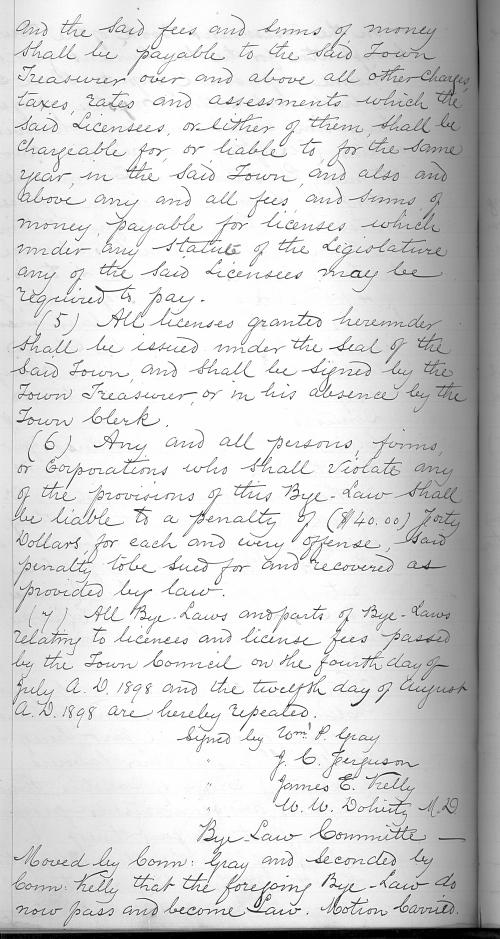 and the said fees and sums of money
shall be payable to the said Town
Treasurer over and above all other charges,
taxes, rates and assessments which the
said Licensees, or either of them, shall be
chargeable for, or liable to, for the same
year, in the said Town, and also and
above any and all fees, and sums of
money, payable for licenses which
under any Statute of the Legislature
any of the said Licensees may be
required to pay.
(5) All licenses granted hereunder
shall be issued under the Seal of the
said Town, and shall be signed by the
Town Treasurer, or in his absence by the
Town Clerk.
(6) Any and all persons, firms,
or Corporations who shall violate any
of the provisions of this Bye-Law shall
be liable to a penalty of ($40.00) Forty
Dollars, for each and every offense, said
penalty to be sued for and recovered as
provided by law.
(7) All Bye-Laws and parts of Bye-Laws
relating to licences and license fees passed
by the Town Council on the fourth day of
July A.D. 1898 and the twelfth day of August
A.D. 1898 are hereby repealed.
Signed by Wm. P. Gray
" J. C. Ferguson
" James E. Kelly
" W. W. Doherty M.D
Bye-Law Committe —
Moved by Conn: Gray and Seconded by
Conn: Kelly that the foregoing Bye-Law do
now pass and become Law. Motion Carried.